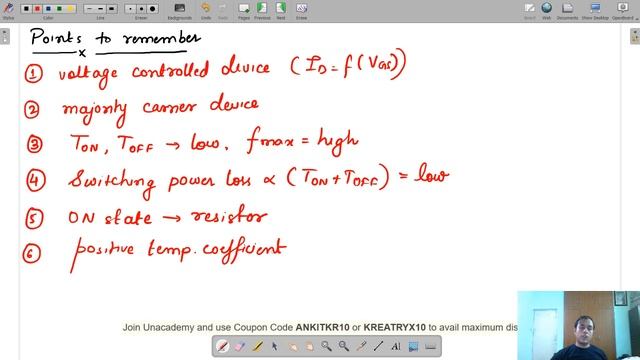 Stylus
Color
Line Thickness
Backgrounds
Undo
Redo
Eraser
Previous
Next
Desktop
Documents
Show Desktop
OpenBoard
Points to remember
x
① voltage controlled device (I_D = f(V_GS))
② majority carrier device
③ T_ON, T_OFF → low, fmax = high
④ Switching power loss ∝ (T_ON + T_OFF) = low
⑤ ON state → resistor
⑥ positive temp. coefficient
Join Unacademy and use Coupon Code ANKITKR10 or KREATRYX10 to avail maximum dis